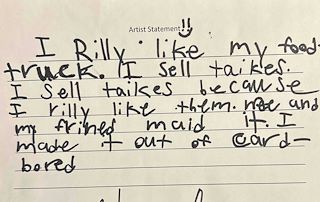 Artist Statement
I Rilly like my food
truck. I sell taikes.
I sell taikes because
I rilly like them. and
my frined maid it. I
made it out of card-
bored